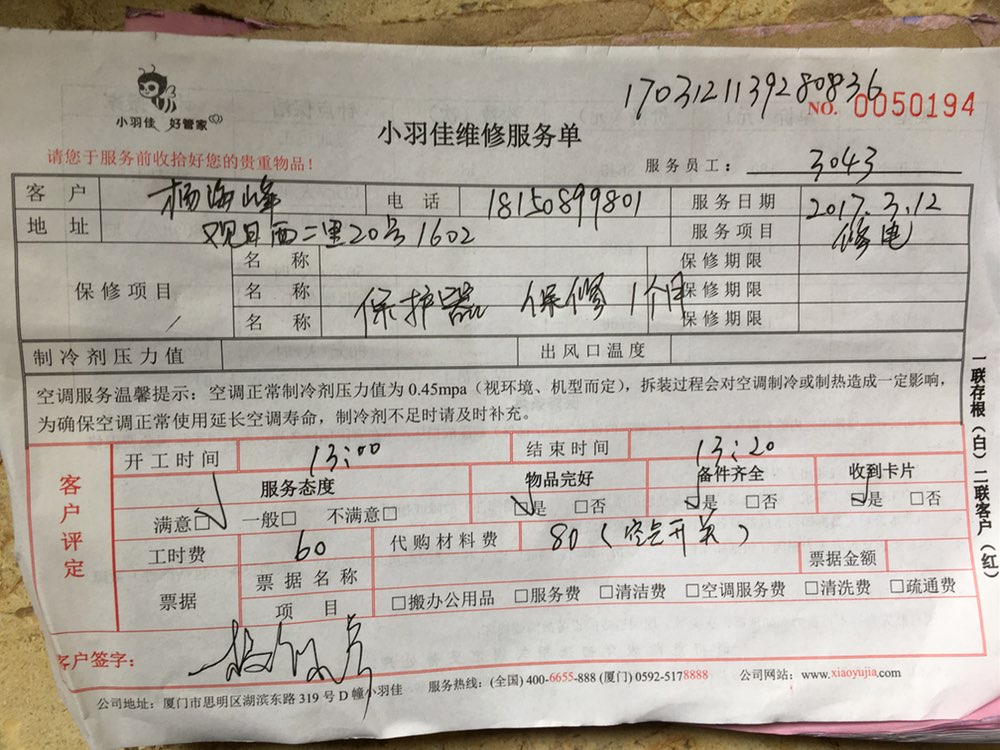 1703121139280836
小羽佳 好管家
NO. 0050194
小羽佳维修服务单
请您于服务前收拾好您的贵重物品！
服务员工： 3043
客户 杨海峰 电话 18150899801 服务日期 2017.3.12
地址 观日西二里20号1602 服务项目 修电
保修项目 名称 保修期限
名称 保护器 保修1个月 保修期限
名称 保修期限
制冷剂压力值 出风口温度
空调服务温馨提示：空调正常制冷剂压力值为 0.45mpa（视环境、机型而定），拆装过程会对空调制冷或制热造成一定影响，
为确保空调正常使用延长空调寿命，制冷剂不足时请及时补充。
一联存根（白）二联客户（红）
客户评定
开工时间 13:00 结束时间 13:20
服务态度 物品完好 备件齐全 收到卡片
满意□ 一般□ 不满意□ □是 □否 □是 □否 □是 □否
工时费 60 代购材料费 80（空气开关） 票据金额
票据 票据名称
项目 □搬办公用品 □服务费 □清洁费 □空调服务费 □清洗费 □疏通费
客户签字：
公司地址：厦门市思明区湖滨东路 319 号 D 幢小羽佳 服务热线：(全国) 400-6655-888 (厦门) 0592-5178888 公司网站：www.xiaoyujia.com